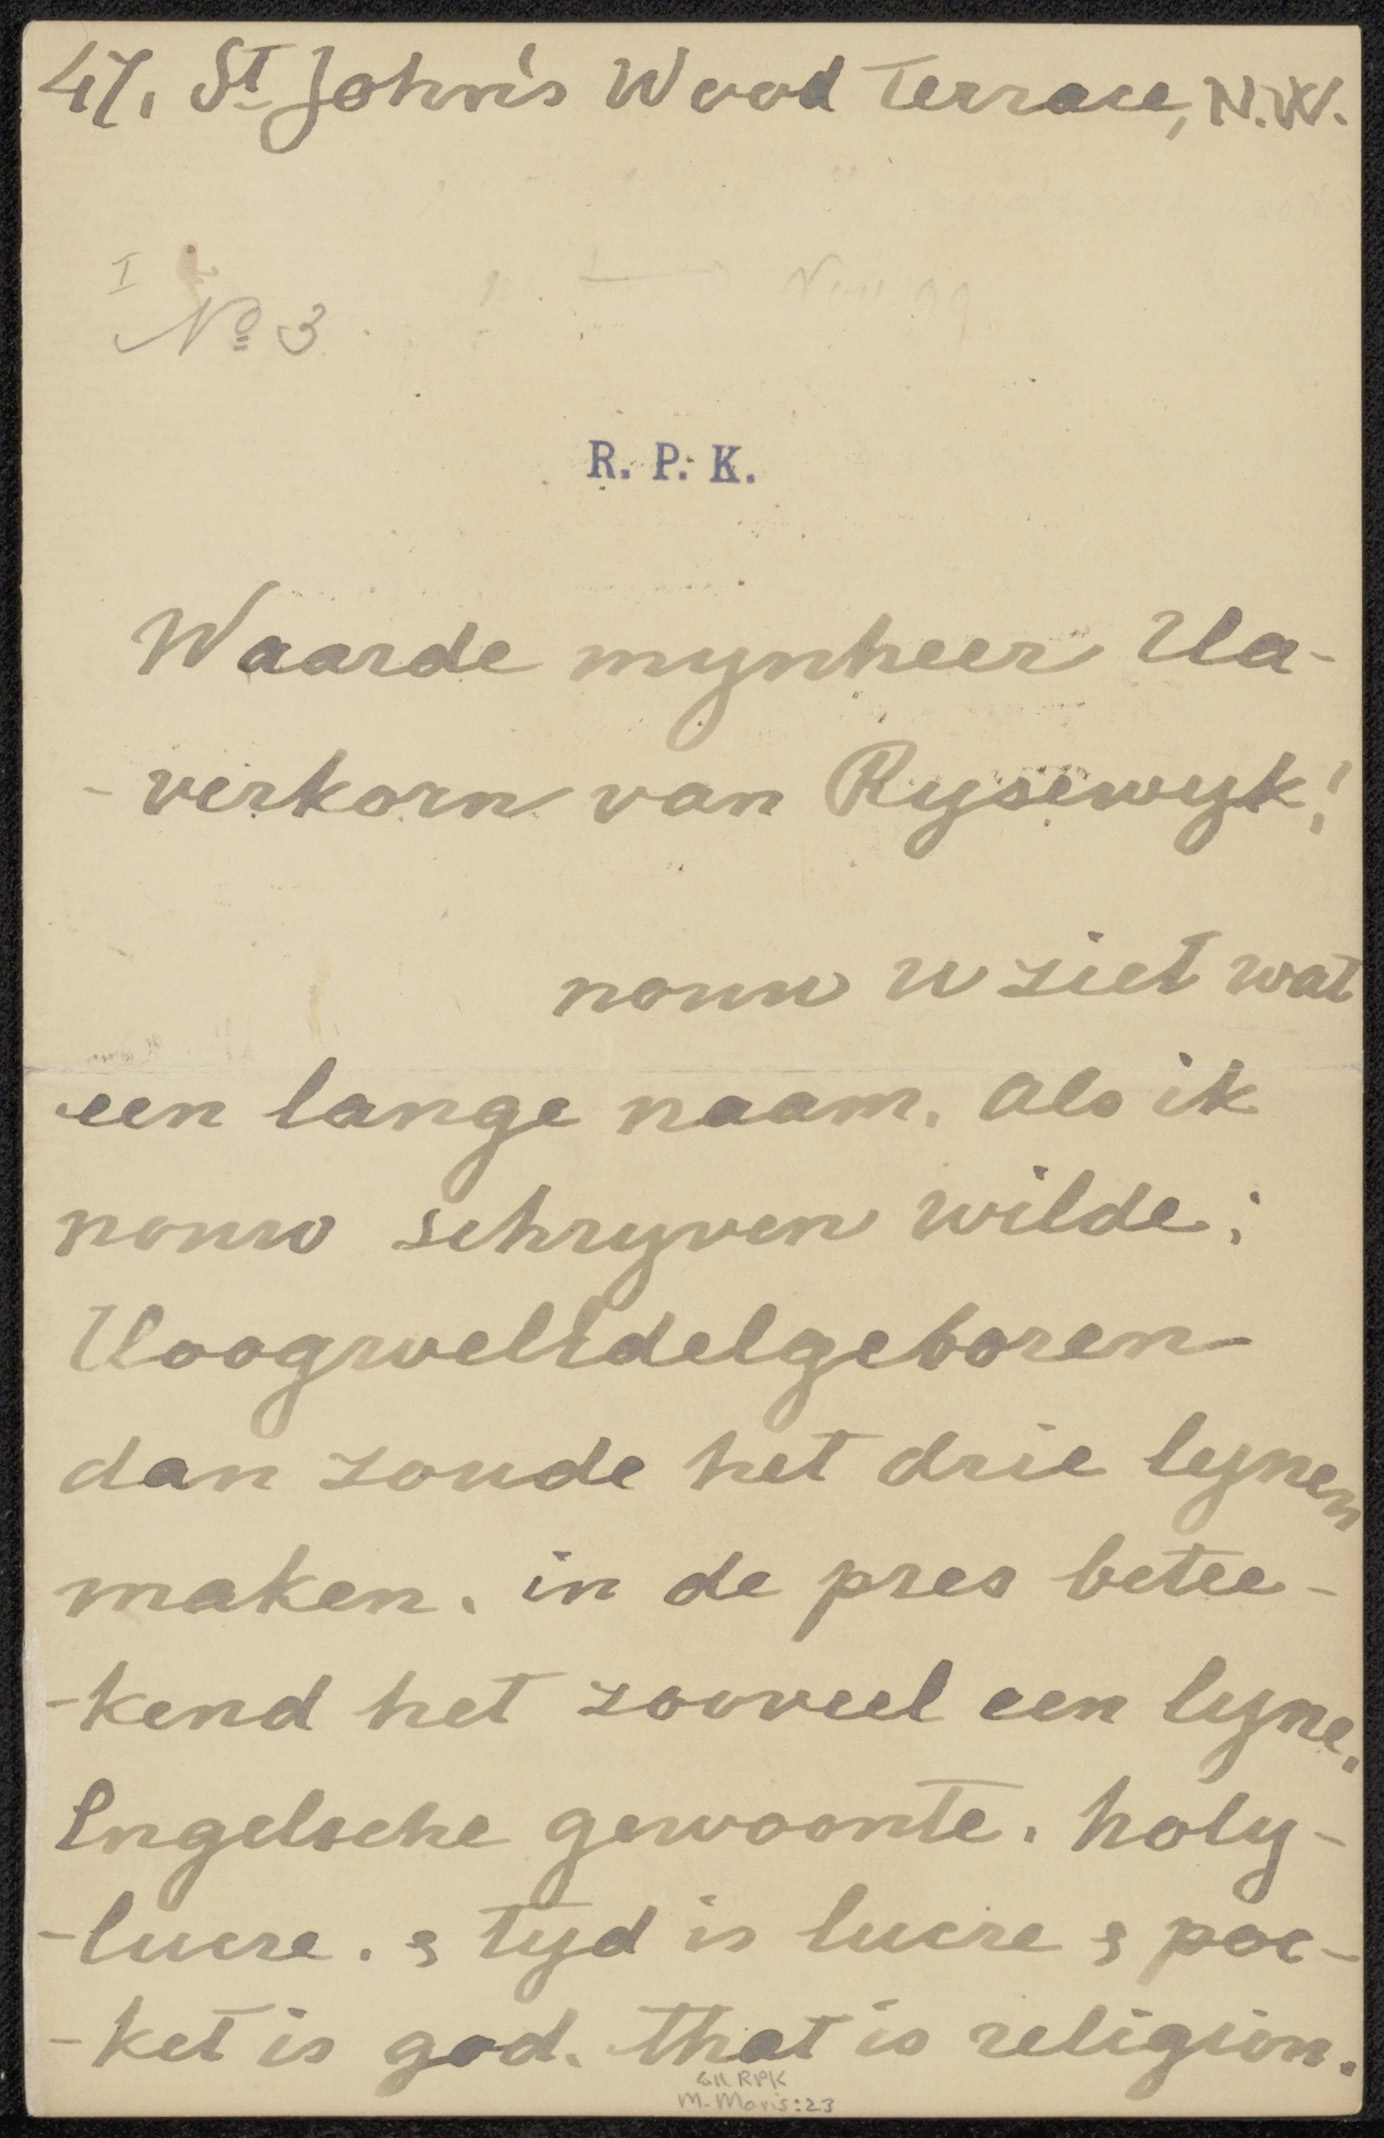 47, St John's Wood Terrace, N.W.
I
No 3
Nov. 99
R. P. K.
Waarde mynheer Ha-
-verkorn van Rysewyk!
nouw u ziet wat
een lange naam. als ik
nouw schryven wilde:
HoogwelEdelgeboren
dan zoude het drie lynen
maken. in de pres betee-
-kend het zooveel een lyne.
Engelsche gewoonte. holy-
-lucre. & tyd is lucre & poc-
-ket is god. that is religion.
GH RPK
M. Maris: 23